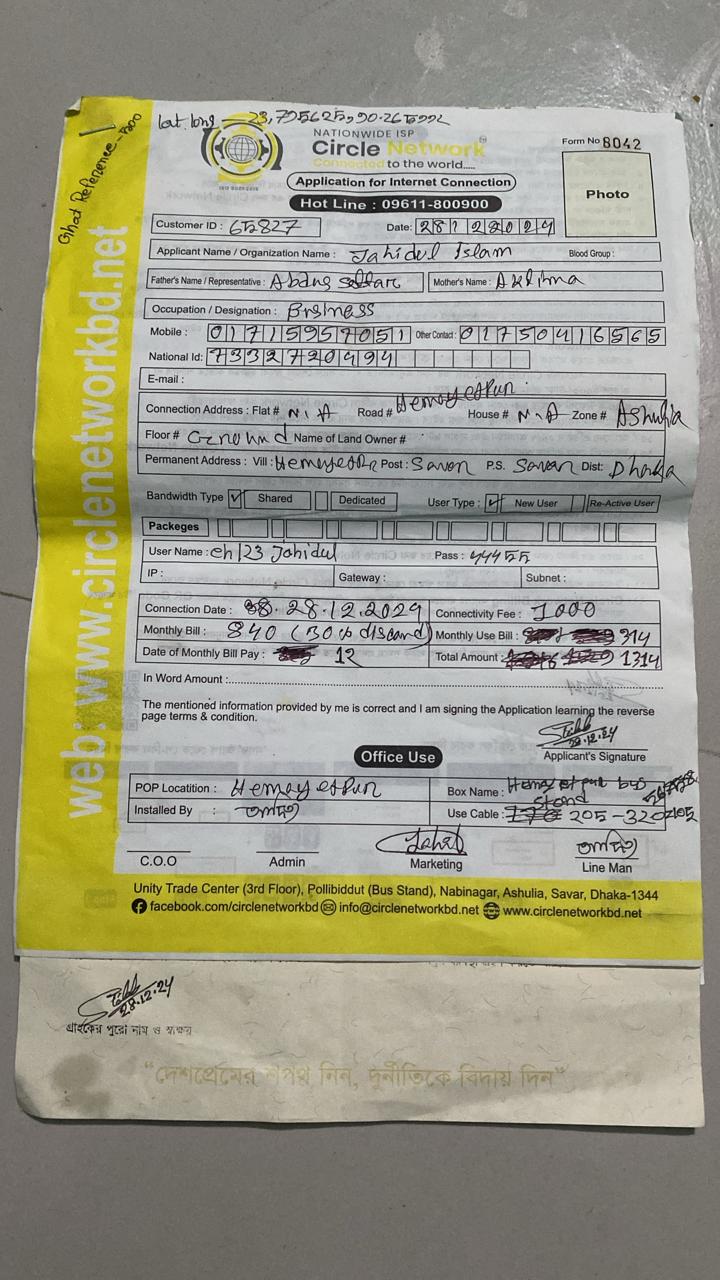 lat. long – 23,795625,90.265992
Ghat Reference - 500
NATIONWIDE ISP
Circle Network
Connected to the world.....
ISO 9001:2015
Form No 8042
Photo
Application for Internet Connection
Hot Line : 09611-800900
Customer ID : 65827 Date: 28122024
Applicant Name / Organization Name : Jahidul Islam Blood Group :
Father's Name / Representative : Abdus sattar Mother's Name : Aklima
Occupation / Designation : Brsiness
Mobile : 01715957051 Other Contact : 01750416565
National Id: 7332720494
E-mail :
Connection Address : Flat # N.A Road # Hemayetpur House # N.A Zone # Ashulia
Floor # Ground Name of Land Owner #
Permanent Address : Vill : Hemayetpr Post : Savar P.S. Savar Dist: Dhaka
Bandwidth Type ✓ Shared Dedicated User Type : ✓ New User Re-Active User
Packeges
User Name : ch123 Jahidul Pass : 44455
IP : Gateway : Subnet :
Connection Date : 28.12.2024 Connectivity Fee : 1000
Monthly Bill : 840 (30% discand) Monthly Use Bill : 314
Date of Monthly Bill Pay : 12 Total Amount : 1314
In Word Amount :
The mentioned information provided by me is correct and I am signing the Application learning the reverse
page terms & condition.
28.12.24
Applicant's Signature
Office Use
POP Locatition : Hemayetpur Box Name : Hemayetpur bus stand
Installed By : Use Cable : 205-320
C.O.O Admin Marketing Line Man
Unity Trade Center (3rd Floor), Pollibiddut (Bus Stand), Nabinagar, Ashulia, Savar, Dhaka-1344
facebook.com/circlenetworkbd info@circlenetworkbd.net www.circlenetworkbd.net
web: www.circlenetworkbd.net
28.12.24
গ্রাহকের পুরো নাম ও স্বাক্ষর
“দেশপ্রেমের শপথ নিন, দুর্নীতিকে বিদায় দিন”